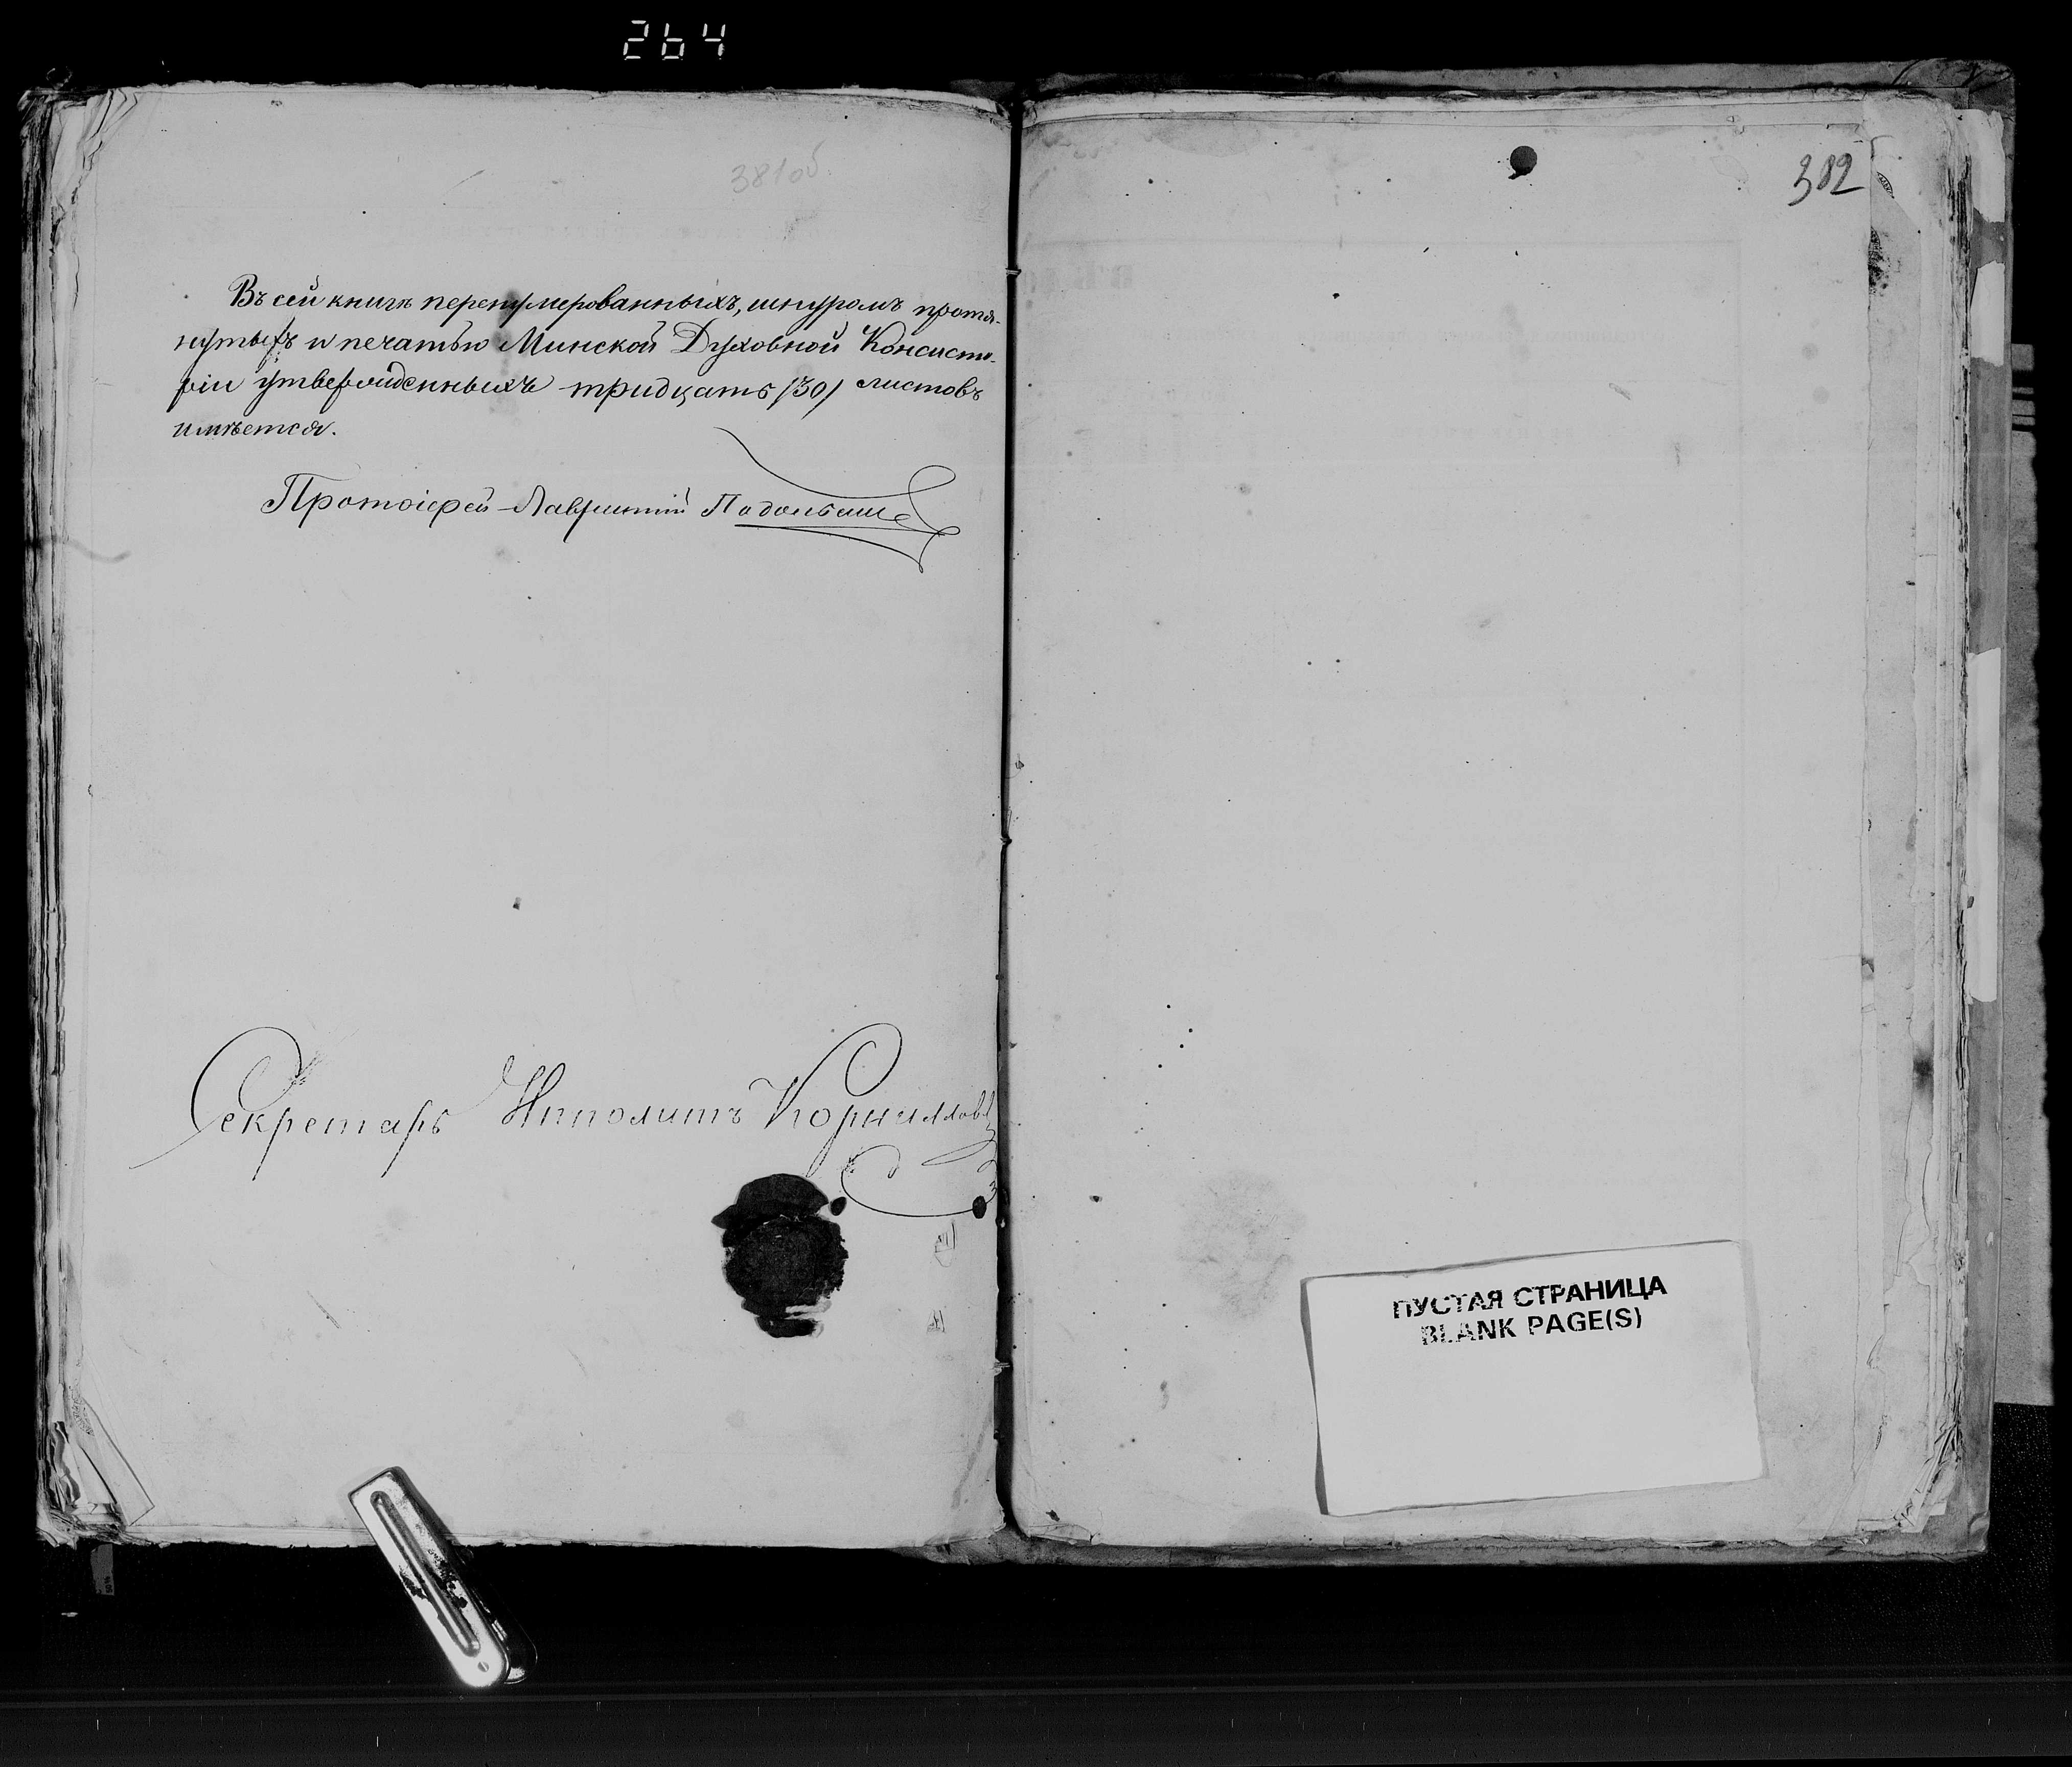 264
381об
Въ сей книгѣ перенумерованныхъ, шнуромъ протя-
нутыхъ и печатью Минской Духовной Консисто-
ріи утвержденныхъ тридцать /30/ листовъ
имѣется.
Протоіерей Лаврентій
Секретарь Ипполитъ Корниловъ
382
ПУСТАЯ СТРАНИЦА
BLANK PAGE(S)